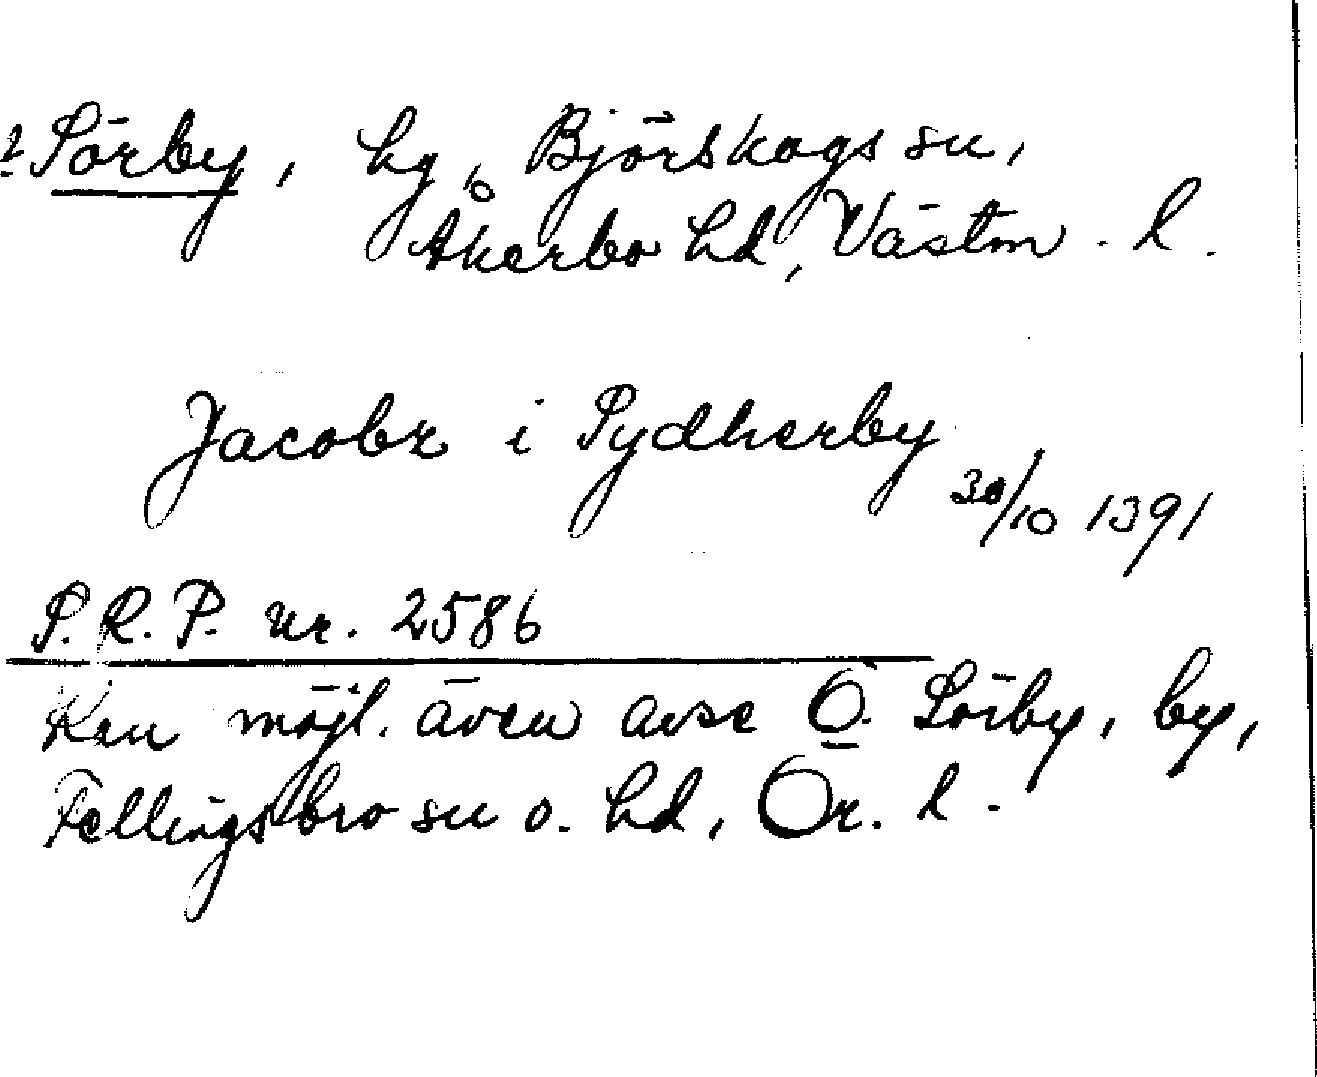 ? Sörby, hg, Björskogs sn,
Åkerbo hd, Västm. l.
Jacobz i Sydherby
30/10 1391
S.R.P. nr. 2586
Kan möjl. även avse Ö. Sörby, by,
Fellingsbro sn o. hd, Ör. l.